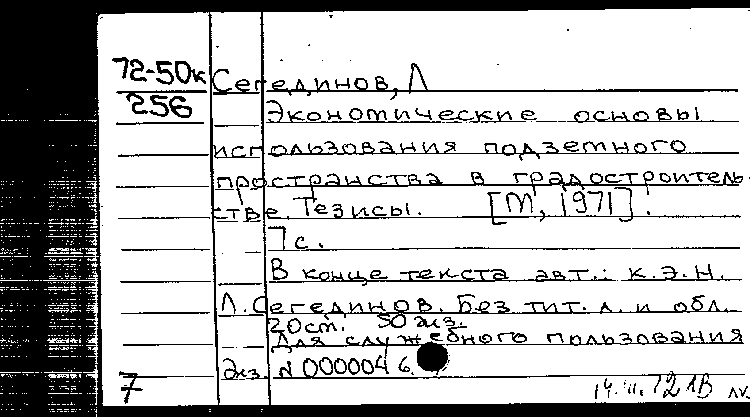 72-50к Сегединов, Л
256
Экономические основы
использования подземного
пространства в градостроитель-
стве. Тезисы. [М, 1971].
7 с.
В конце текста авт.: к.э.н.
Л. Сегединов. Без тит. л. и обл.
20 см. 50 экз.
Для служебного пользования
Экз. N 0000046
7